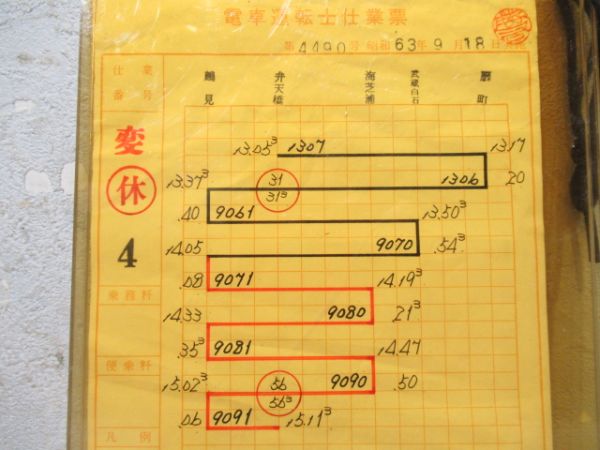 電車運転士仕業票
第4490号 昭和63年9月18日
仕業番号
鶴見 弁天橋 海芝浦 武蔵白石 扇町
変
休
4
乗務料
便乗料
凡例
13.05³ 1307 13.17
13.37³ 31 31³ 1306 20
.40 9061 13.50³
14.05 9070 .54³
.08 9071 14.19³
14.33 9080 21³
.35³ 9081 14.47
15.02³ 56 56³ 9090 .50
.06 9091 15.11³